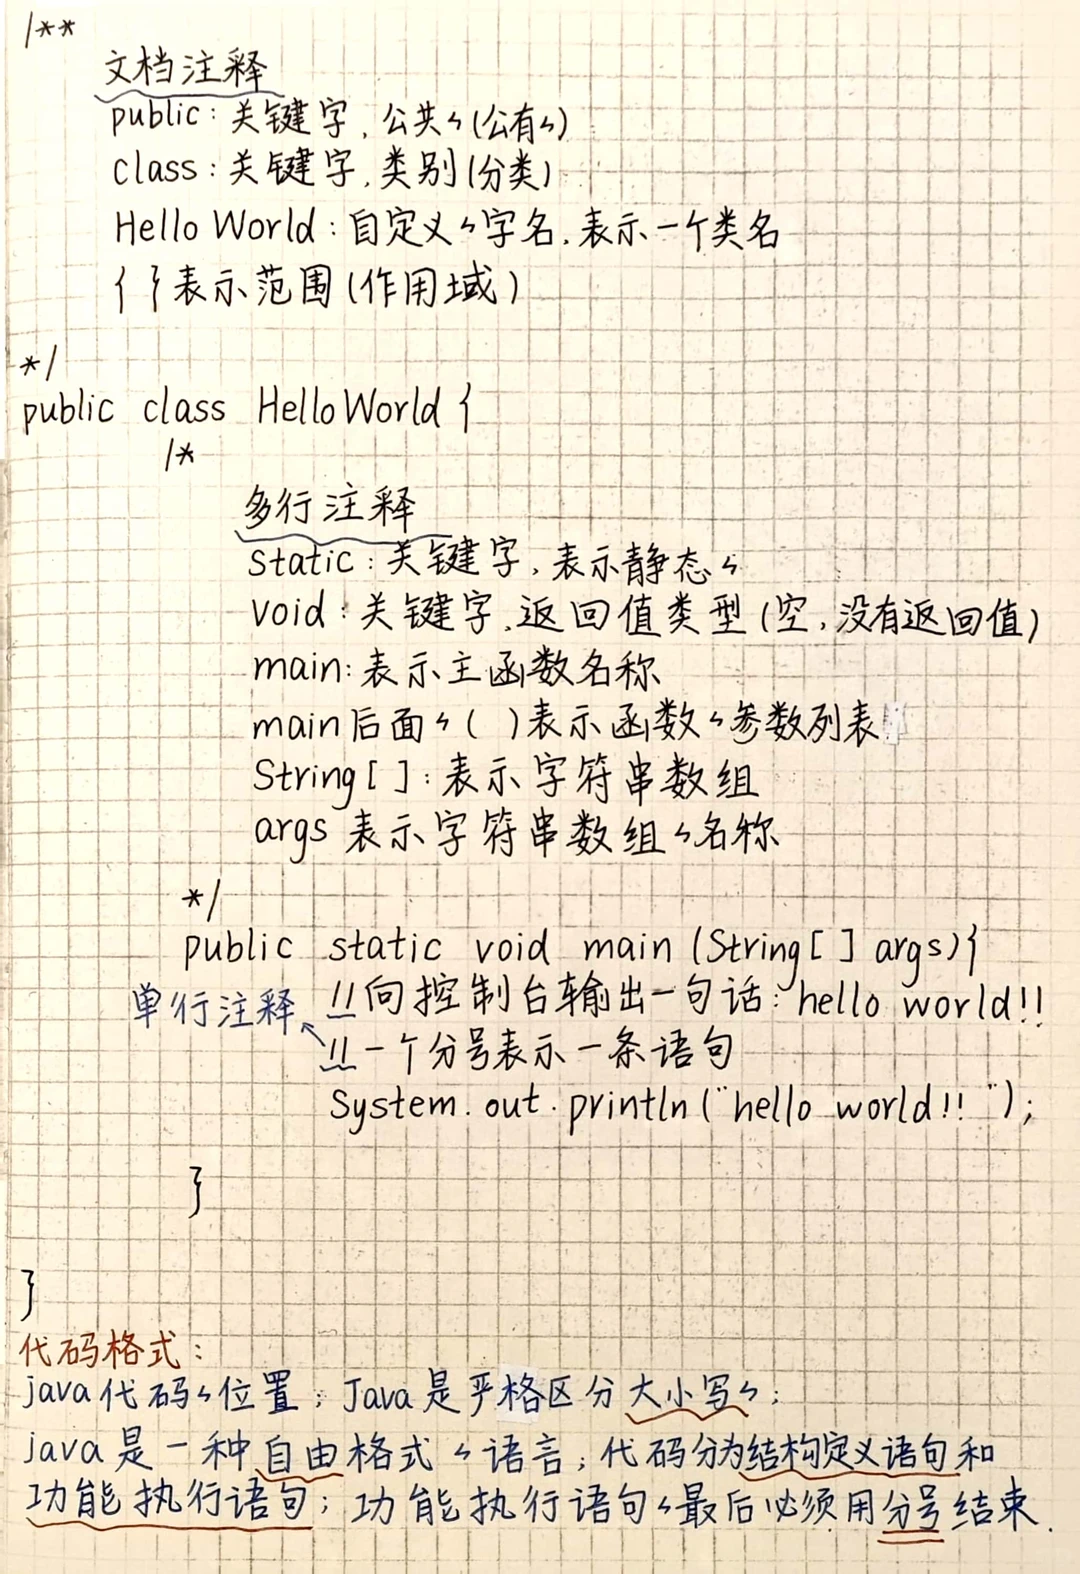 /**
文档注释
public：关键字，公共的(公有的)
class：关键字，类别(分类)
Hello World：自定义的字名，表示一个类名
{ }表示范围(作用域)
*/
public class HelloWorld {
/*
多行注释
static：关键字，表示静态的
void：关键字，返回值类型(空，没有返回值)
main：表示主函数名称
main后面的( )表示函数的参数列表
String[ ]：表示字符串数组
args 表示字符串数组的名称
*/
public static void main (String[ ] args){
单行注释 //向控制台输出一句话：hello world!!
//一个分号表示一条语句
System.out.println("hello world!! ");
}
}
代码格式：
java代码的位置；Java是严格区分大小写的；
java是一种自由格式的语言；代码分为结构定义语句和
功能执行语句；功能执行语句的最后必须用分号结束.